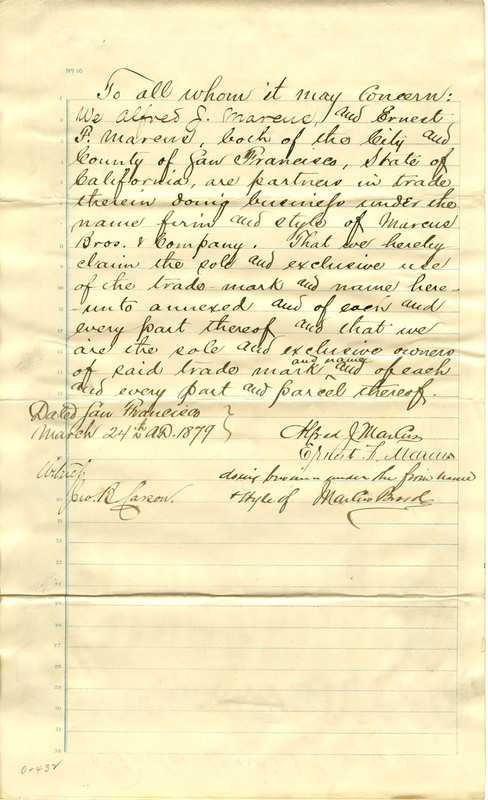 No 10
To all whom it may Concern:
We Alfred J. Marcus, and Ernest
F. Marcus, both of the City and
County of San Francisco, State of
California, are partners in trade
therein doing business under the
name firm and style of Marcus
Bros. & Company. That we hereby
claim the sole and exclusive use
of the trade-mark and name here-
-unto annexed and of each and
every part thereof and that we
are the sole and exclusive owners
of said trade mark and name and of each
and every part and parcel thereof.
Dated San Francisco
March 24th A.D. 1879
Alfred J Marcus
Ernest F. Marcus
doing business under the firm name
& style of Marcus Bros &
Geo. R.
0-432